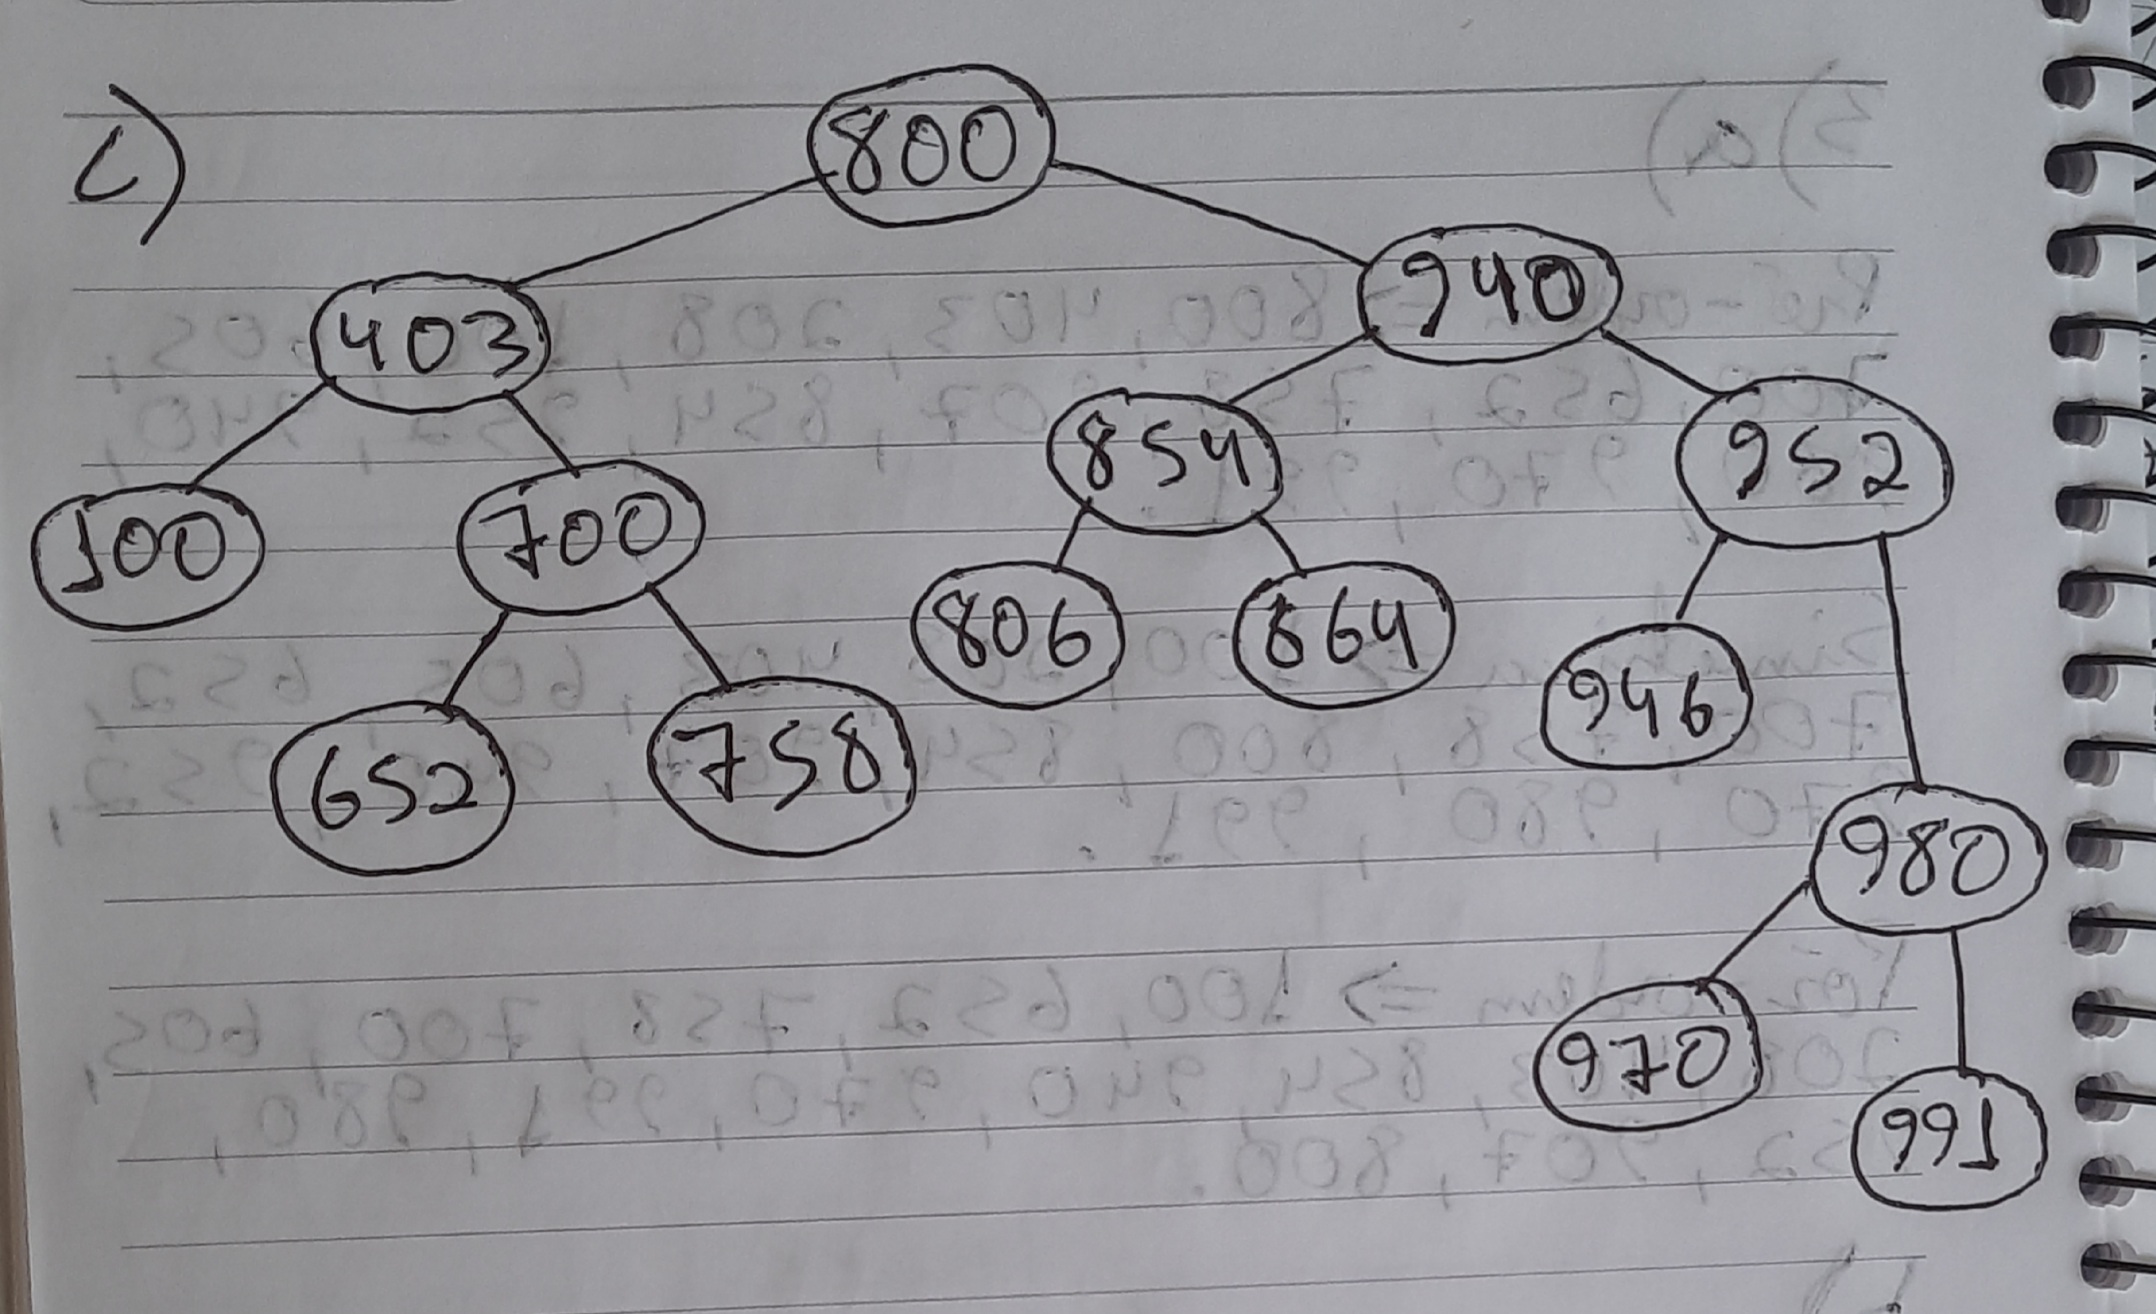 c)
800
403 940
100 700 854 952
652 758 806 864 946
980
970
991